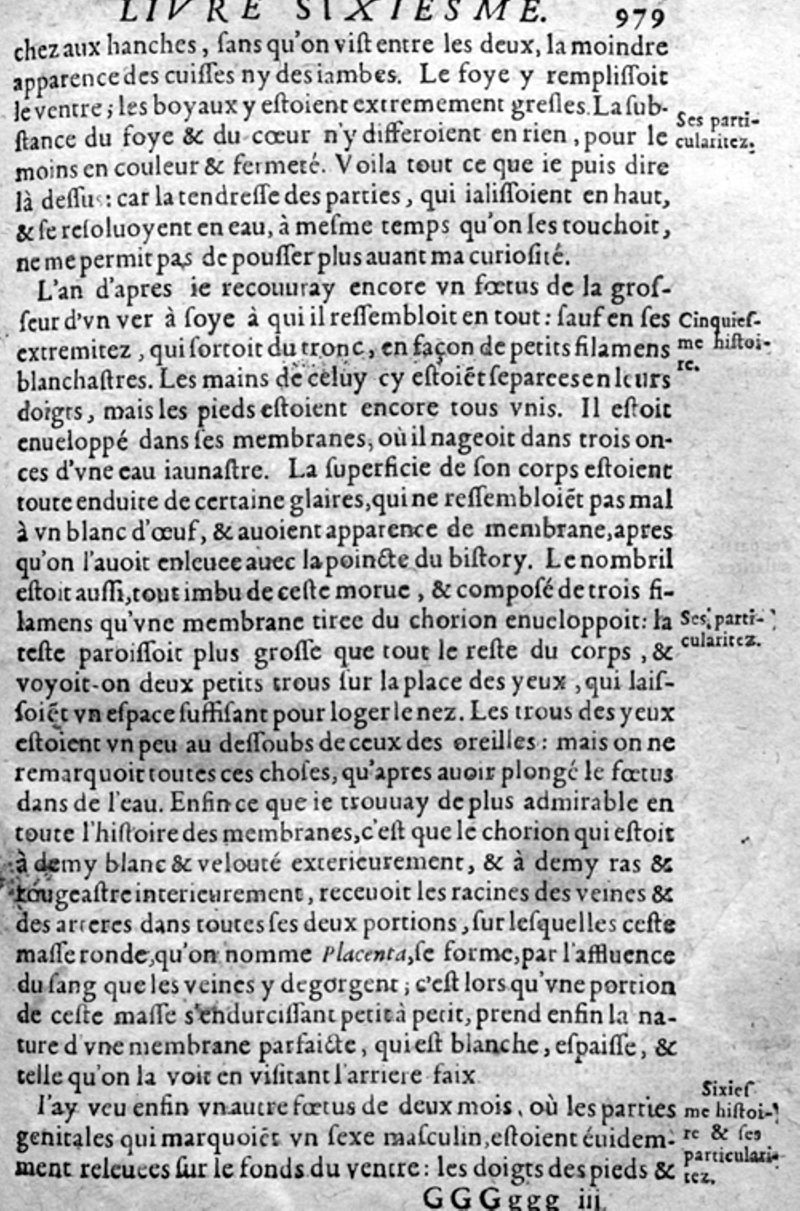 LIVRE SIXIESME. 979
chez aux hanches, sans qu'on vist entre les deux, la moindre
apparence des cuisses ny des iambes. Le foye y remplissoit
le ventre; les boyaux y estoient extremement gresles. La sub-
stance du foye & du cœur n'y differoient en rien, pour le
moins en couleur & fermeté. Voila tout ce que ie puis dire
là dessus: car la tendresse des parties, qui ialissoient en haut,
& se resoluoyent en eau, à mesme temps qu'on les touchoit,
ne me permit pas de pousser plus auant ma curiosité.
Ses parti-
cularitez.
L'an d'apres ie recouuray encore vn fœtus de la gros-
seur d'vn ver à soye à qui il ressembloit en tout: sauf en ses
extremitez, qui sortoit du tronc, en façon de petits filamens
blanchastres. Les mains de celuy cy estoiẽt separees en leurs
doigts, mais les pieds estoient encore tous vnis. Il estoit
enueloppé dans ses membranes, où il nageoit dans trois on-
ces d'vne eau iaunastre. La superficie de son corps estoient
toute enduite de certaine glaires, qui ne ressembloiẽt pas mal
à vn blanc d'œuf, & auoient apparence de membrane, apres
qu'on l'auoit enleuee auec la poincte du bistory. Le nombril
estoit aussi, tout imbu de ceste morue, & composé de trois fi-
lamens qu'vne membrane tiree du chorion enueloppoit: la
teste paroissoit plus grosse que tout le reste du corps, &
voyoit-on deux petits trous sur la place des yeux, qui lais-
soiẽt vn espace suffisant pour loger le nez. Les trous des yeux
estoient vn peu au dessoubs de ceux des oreilles: mais on ne
remarquoit toutes ces choses, qu'apres auoir plongé le fœtus
dans de l'eau. Enfin ce que ie trouuay de plus admirable en
toute l'histoire des membranes, c'est que le chorion qui estoit
à demy blanc & velouté exterieurement, & à demy ras &
rougeastre interieurement, receuoit les racines des veines &
des arteres dans toutes ses deux portions, sur lesquelles ceste
masse ronde, qu'on nomme Placenta, se forme, par l'affluence
du sang que les veines y degorgent; c'est lors qu'vne portion
de ceste masse s'endurcissant petit à petit, prend enfin la na-
ture d'vne membrane parfaicte, qui est blanche, espaisse, &
telle qu'on la voit en visitant l'arriere faix
Cinquies-
me histoi-
re.
Ses parti-
cularitez.
I'ay veu enfin vn autre fœtus de deux mois, où les parties
genitales qui marquoiẽt vn sexe masculin, estoient éuidem-
ment releuees sur le fonds du ventre: les doigts des pieds &
Sixies
me histoi-
re & ses
particulari-
tez.
GGGggg iij